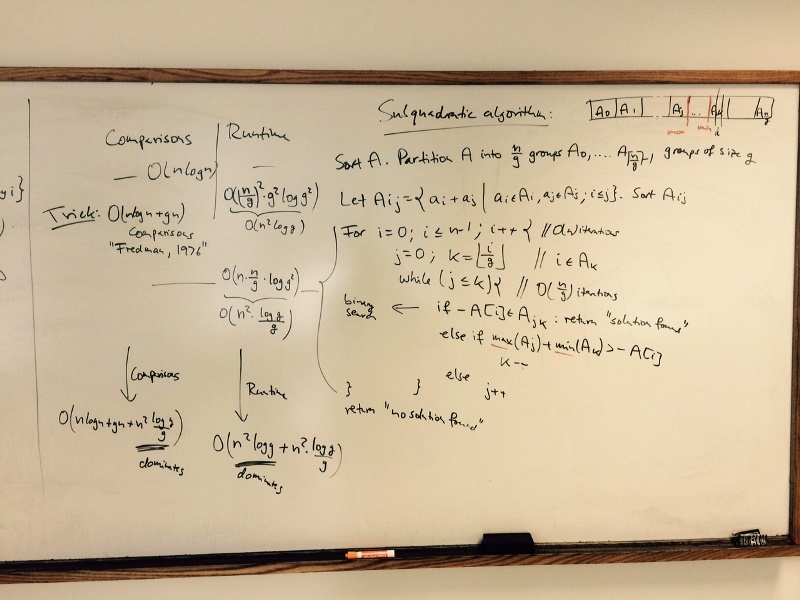 yi}
Comparisons
Runtime
— O(nlogn)
—
Trick: O(nlogn+gn)
Comparisons
"Fredman, 1976"
O((n/g)²·g²logg²)
O(n²logg)
O(n·n/g·logg²)
O(n²·logg/g)
Comparisons
Runtime
O(nlogn+gn+n²logg/g)
dominates
O(n²logg+n²·logg/g)
dominates
Subquadratic algorithm:
A₀ A₁ Aj ... Ak
max min i
Sort A. Partition A into n/g groups A₀, ....
groups of size g
Let Aij={ai+aj | ai∈Ai, aj∈Aj; i≤j}. Sort Aij
For i=0; i≤n-1; i++ { //
j=0; k=⌊i/g⌋ // i∈Ak
while (j≤k){ // O(n/g) iterations
binary
search
← if -A[i]∈Ajk : return "solution found"
else if max(Aj)+min(Ak)>-A[i]
k--
else
j++
} }
return "no solution found"